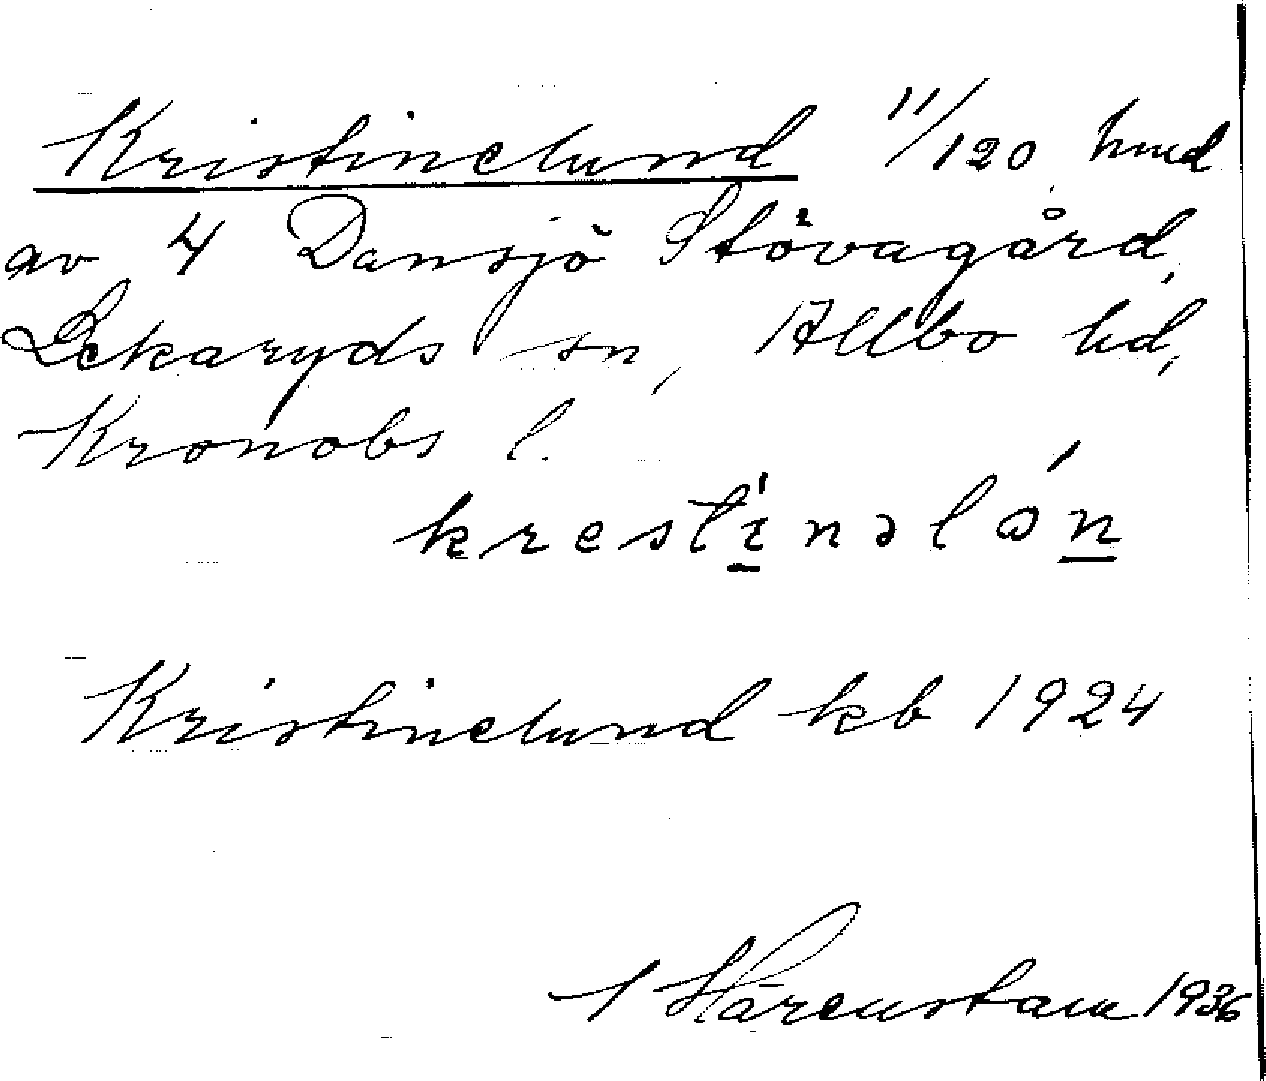 Kristinelund 11/120 hmd
av 4 Dansjö Stövagård,
Lekaryds sn, Allbo hd,
Kronobs l.
krestìnəlón
Kristinelund kb 1924
Härenstam 1936